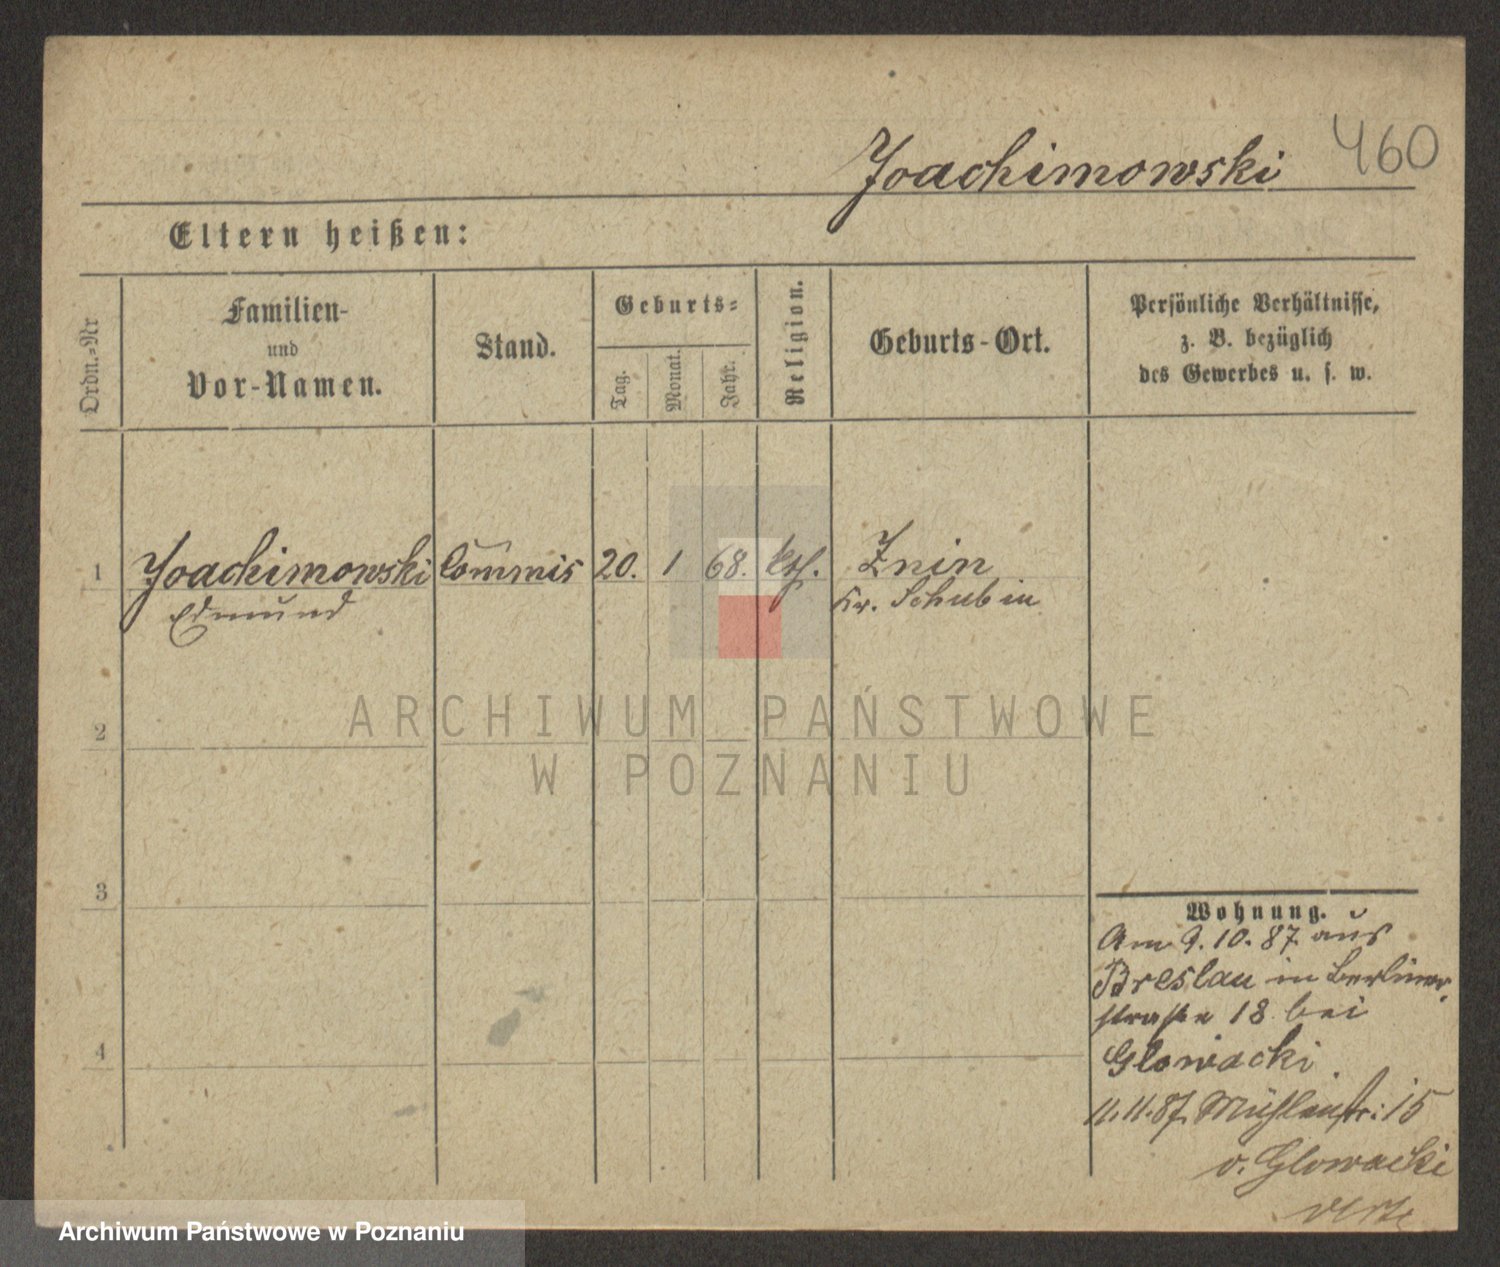 460
Joachimowski
Eltern heißen:
Ordn.-Nr
Familien-
und
Vor-Namen.
Stand.
Geburts-
Tag.
Monat.
Jahr.
Religion.
Geburts-Ort.
Persönliche Verhältnisse,
z. B. bezüglich
des Gewerbes u. s. w.
1 Joachimowski Commis 20. 1 68. kth. Znin
Edmund Kr. Schubin
2
ARCHIWUM PAŃSTWOWE
W POZNANIU
3
Wohnung.
Am 9.10.87 aus
Breslau in Berliner
straße 18 bei
4
Glowacki
11.11.87 Mühlenstr: 15
v. Glowacki
Archiwum Państwowe w Poznaniu